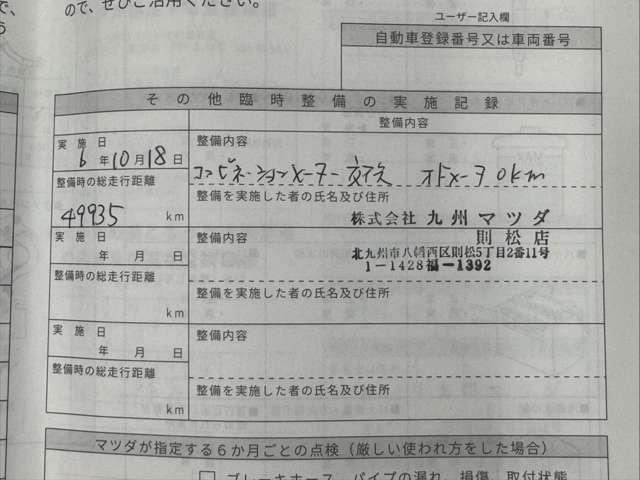 ので、ぜひご活用ください。
で、
ユーザー記入欄
自動車登録番号又は車両番号
その他臨時整備の実施記録
整備内容
実施日
6年10月18日
整備内容
コンビネーションメーター交換 オドメータ0km
整備時の総走行距離
49935 km
整備を実施した者の氏名及び住所
株式会社 九州マツダ
則松店
北九州市八幡西区則松5丁目2番11号
1-1428福-1392
実施日
年 月 日
整備内容
整備時の総走行距離
km
整備を実施した者の氏名及び住所
実施日
年 月 日
整備内容
整備時の総走行距離
km
整備を実施した者の氏名及び住所
マツダが指定する6か月ごとの点検(厳しい使われ方をした場合)
□ ブレーキホース、パイプの漏れ、損傷、取付状態